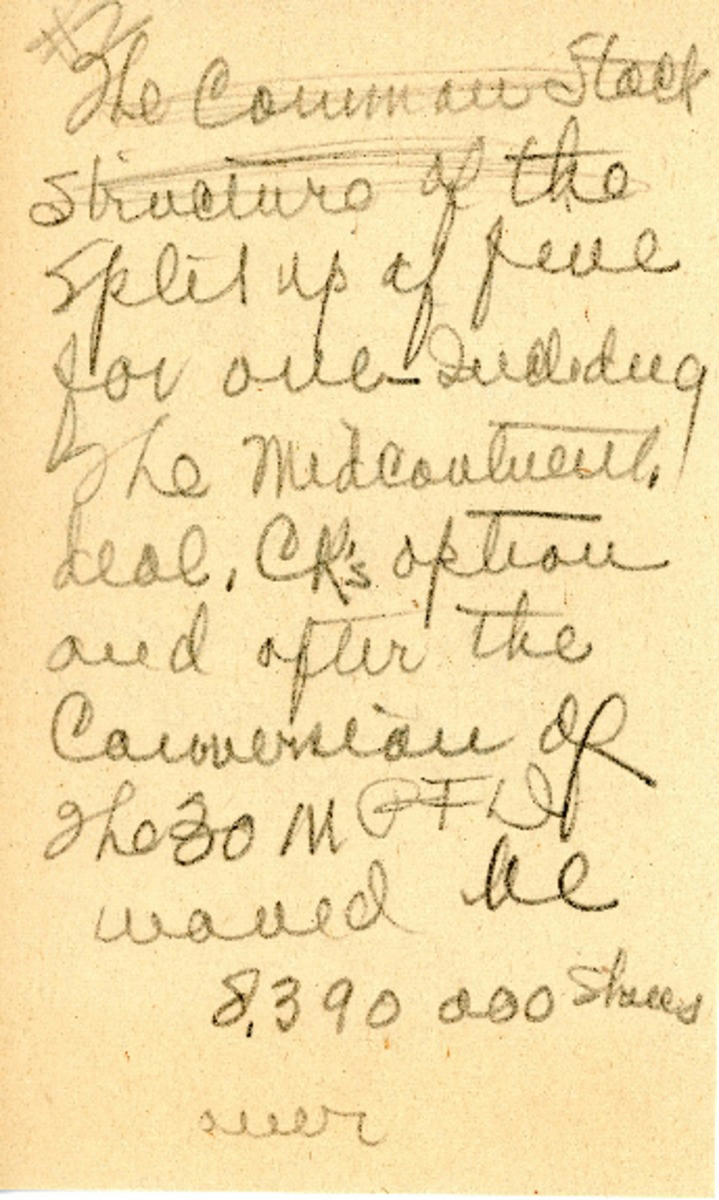 #2
The Common Stock
Structure of the
Split up of five
for one - Including
The Midcontinent.
deal, CR's option
and after the
Conversion of
The 30 M PFD
would be
8,390 000 Shares
over